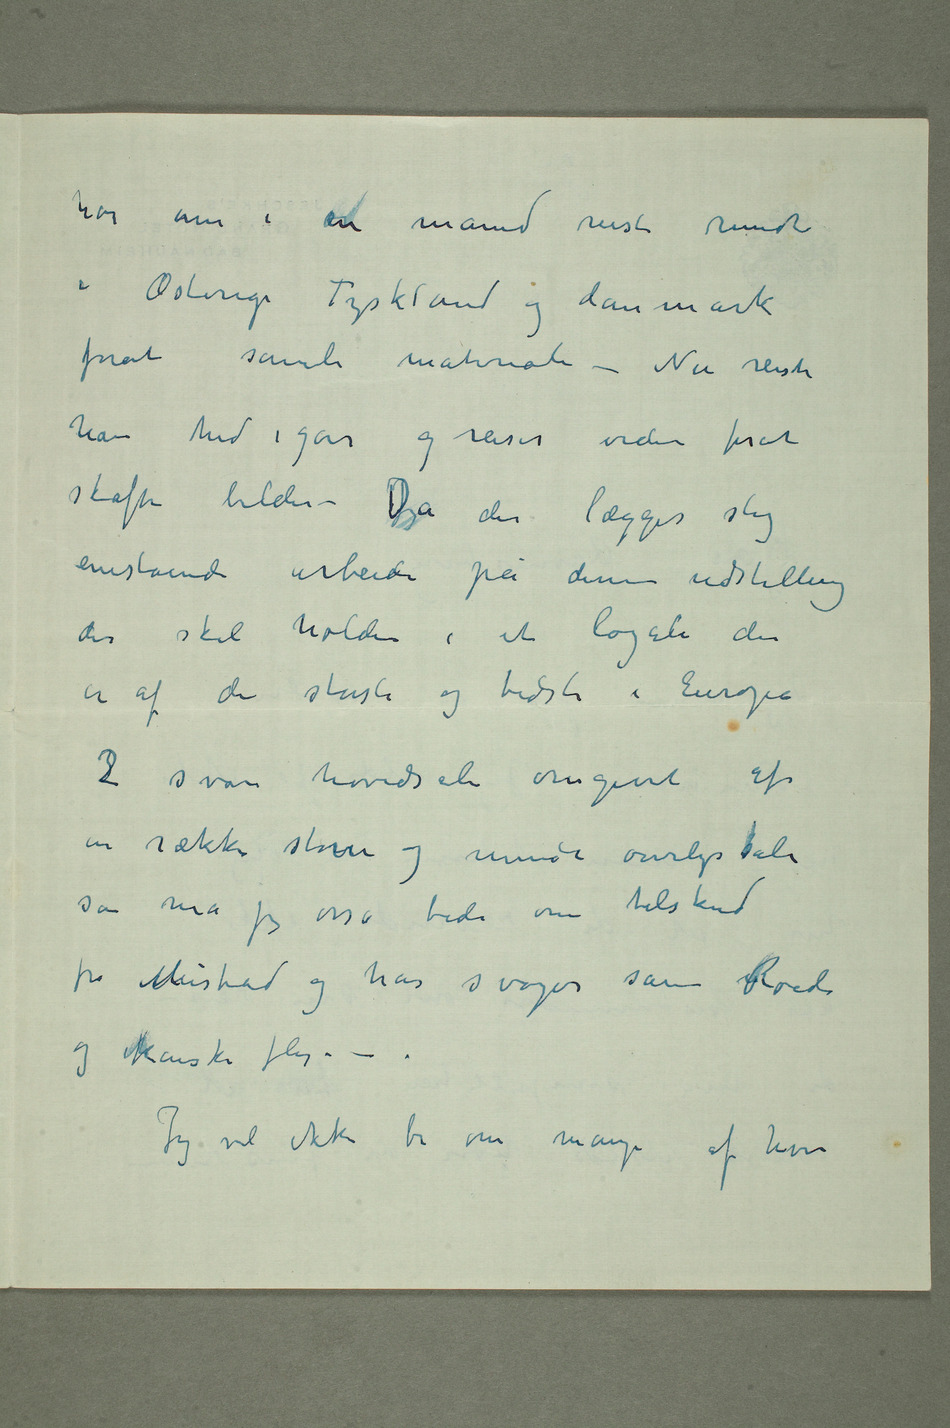 har nu i en måned reist rundt
i Østerige Tyskland og danmark
forat samle materiale – Nu reiste
han hid igår og reiser viden forat
skaffe bilder – Da der lægges slig
enestående arbeide på denne udstilling
der skal holdes i et logale der
er af de støste og bedste i Europa
2 svære hovedsale omgivet af
en række større og mindre oværlys sale
så må jeg osså bede om tilskud
fra Mustad og has svoger samt Roede
og kanske fler. – .
Jeg vil ikke be om mange af hver